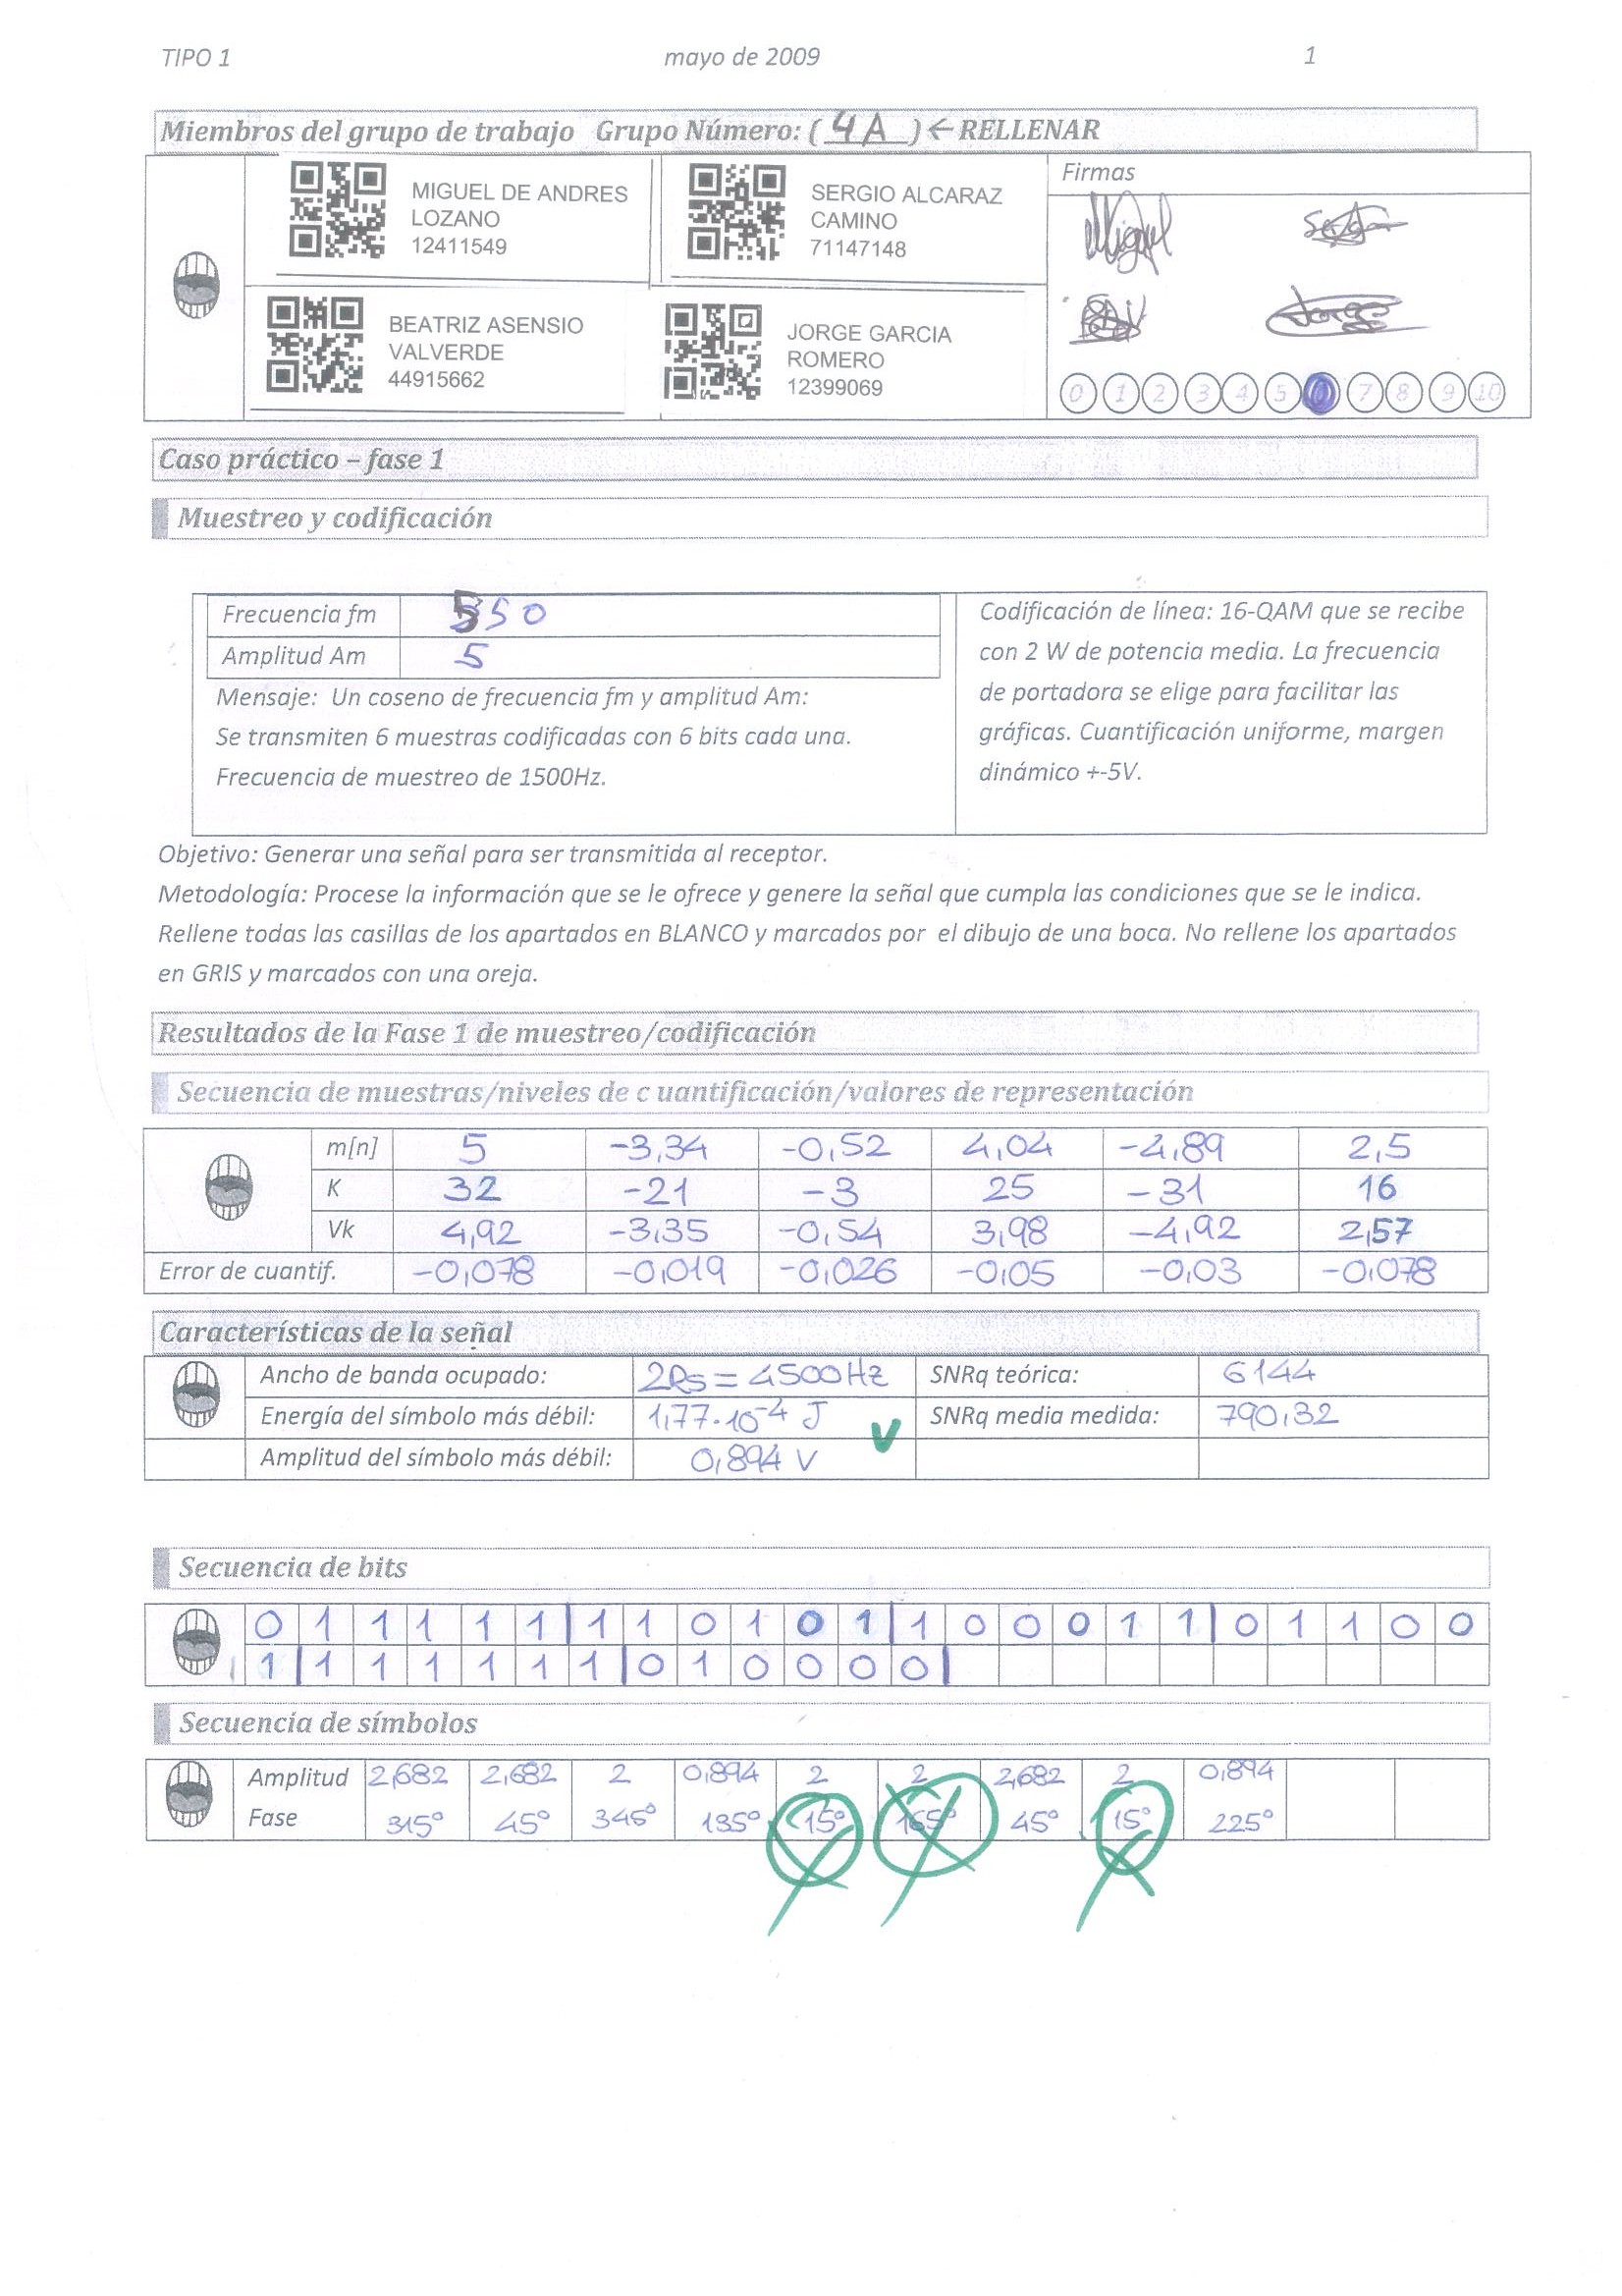 TIPO 1 mayo de 2009 1
Miembros del grupo de trabajo Grupo Número: ( 4A ) ← RELLENAR
MIGUEL DE ANDRES
LOZANO
12411549
SERGIO ALCARAZ
CAMINO
71147148
Firmas
Miguel
BEATRIZ ASENSIO
VALVERDE
44915662
JORGE GARCIA
ROMERO
12399069
Jorge
0 1 2 3 4 5 6 7 8 9 10
Caso práctico – fase 1
Muestreo y codificación
Frecuencia fm 550
Amplitud Am 5
Mensaje: Un coseno de frecuencia fm y amplitud Am:
Se transmiten 6 muestras codificadas con 6 bits cada una.
Frecuencia de muestreo de 1500Hz.
Codificación de línea: 16-QAM que se recibe
con 2 W de potencia media. La frecuencia
de portadora se elige para facilitar las
gráficas. Cuantificación uniforme, margen
dinámico +-5V.
Objetivo: Generar una señal para ser transmitida al receptor.
Metodología: Procese la información que se le ofrece y genere la señal que cumpla las condiciones que se le indica.
Rellene todas las casillas de los apartados en BLANCO y marcados por el dibujo de una boca. No rellene los apartados
en GRIS y marcados con una oreja.
Resultados de la Fase 1 de muestreo/codificación
Secuencia de muestras/niveles de c uantificación/valores de representación
m[n] 5 -3,34 -0,52 4,04 -4,89 2,5
K 32 -21 -3 25 -31 16
Vk 4,92 -3,35 -0,54 3,98 -4,92 2,57
Error de cuantif. -0,078 -0,019 -0,026 -0,05 -0,03 -0,078
Características de la señal
Ancho de banda ocupado: 2Rs = 4500 Hz SNRq teórica: 6144
Energía del símbolo más débil: 1,77·10-4 J SNRq media medida: 790,32
Amplitud del símbolo más débil: 0,894 V
Secuencia de bits
0 1 1 1 1 1 | 1 1 0 1 0 1 | 1 0 0 0 1 1 | 0 1 1 0 0
1 | 1 1 1 1 1 1 | 0 1 0 0 0 0 |
Secuencia de símbolos
Amplitud 2,682 2,682 2 0,894 2 2 2,682 2 0,894
Fase 315° 45° 345° 135° 15° 165° 45° 15° 225°